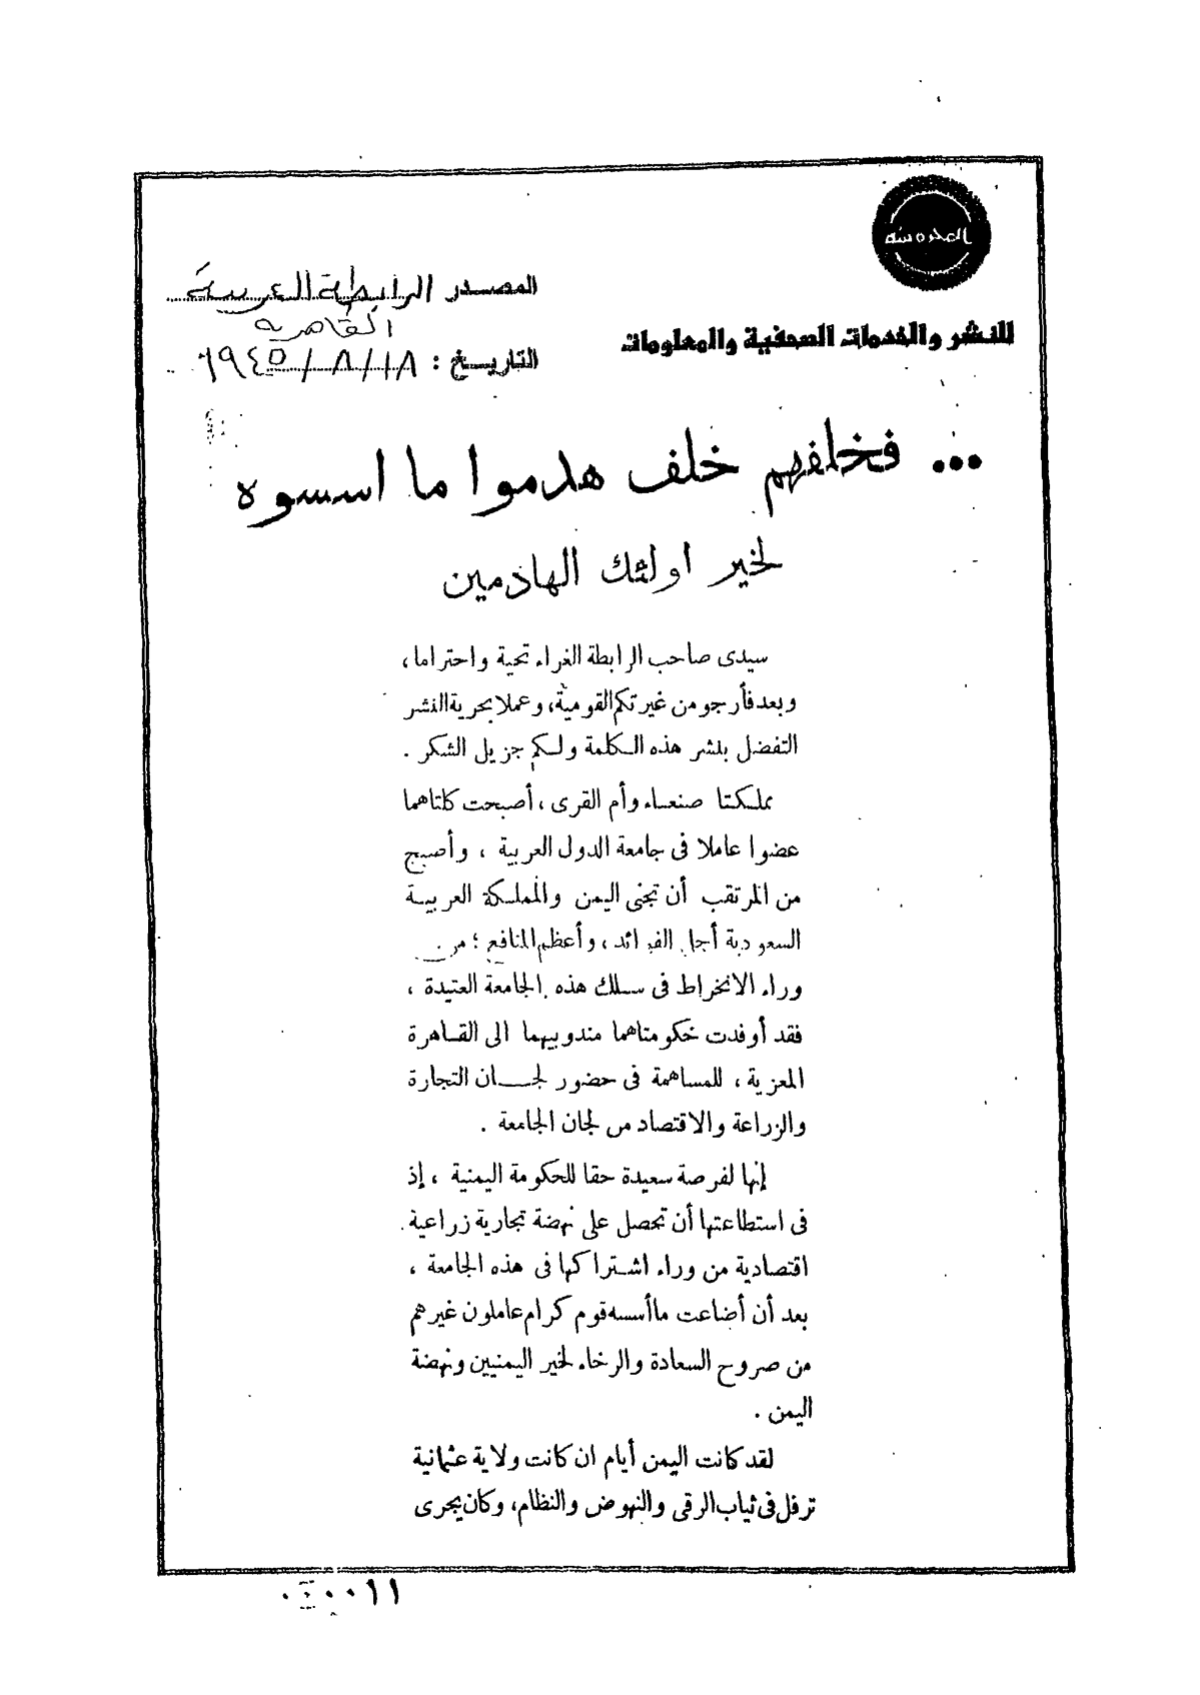 المحروسة
للنشر والخدمات الصحفية والمعلومات
المصدر الرابطة العربية
القاهرية
التاريخ : ١٨/٨/١٩٤٥
... فخلفهم خلف هدموا ما اسسوه
لخير اولئك الهادمين
سيدى صاحب الرابطة الغراء تحية واحتراما ،
وبعد فأرجو من غيرتكم القومية، وعملا بحرية النشر
التفضل بنشر هذه الكلمة ولكم جزيل الشكر .
مملكتا صنعاء وأم القرى ، أصبحت كلتاهما
عضوا عاملا فى جامعة الدول العربية ، وأصبح
من المرتقب أن تجنى اليمن والمملكة العربية
السعودية أجل الفوائد ، وأعظم المنافع ؛ من
وراء الانخراط فى سلك هذه الجامعة العتيدة ،
فقد أوفدت حكومتاهما مندوبيهما الى القاهرة
المعزية ، للمساهمة فى حضور لجان التجارة
والزراعة والاقتصاد من لجان الجامعة .
إنها لفرصة سعيدة حقا للحكومة اليمنية ، إذ
فى استطاعتها أن تحصل على نهضة تجارية زراعية
اقتصادية من وراء اشتراكها فى هذه الجامعة ،
بعد أن أضاعت ما أسسه قوم كرام عاملون غيرهم
من صروح السعادة والرخاء لخير اليمنيين ونهضة
اليمن .
لقد كانت اليمن أيام ان كانت ولاية عثمانية
ترفل فى ثياب الرقى والنهوض والنظام، وكان يجرى